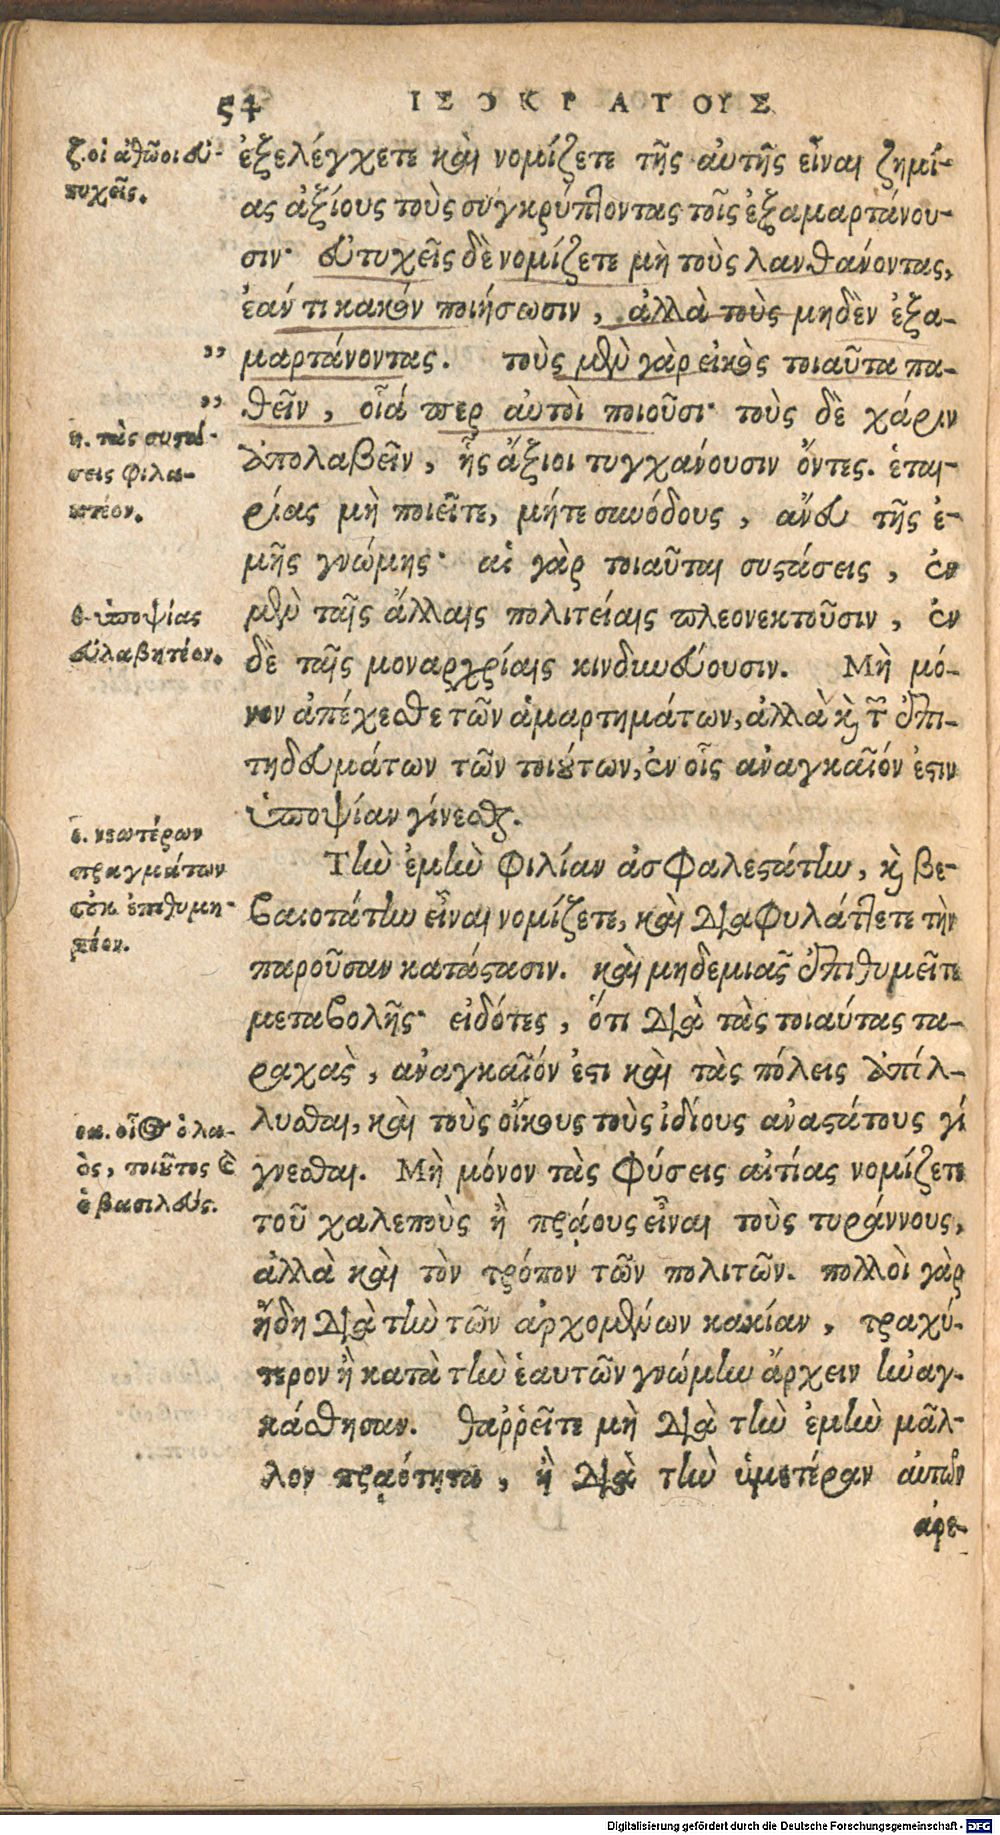 54 ΙΣΟΚΡΑΤΟΥΣ
ζ. οἱ ἀθῶοι εὐ-
τυχεῖς.
ἐξελέγχετε καὶ νομίζετε τῆς αὐτῆς εἶναι ζημί-
ας ἀξίους τοὺς συγκρύπτοντας τοῖς ἐξαμαρτάνου-
σιν· εὐτυχεῖς δὲ νομίζετε μὴ τοὺς λανθάνοντας,
ἐάν τι κακὸν ποιήσωσιν, ἀλλὰ τοὺς μηδὲν ἐξα-
" μαρτάνοντας. τοὺς μὲν γὰρ εἰκὸς τοιαῦτα πα-
" θεῖν, οἷά περ αὐτοὶ ποιοῦσι· τοὺς δὲ χάριν
η. τὰς συστά-
σεις φυλα-
κτέον.
ἀπολαβεῖν, ἧς ἄξιοι τυγχάνουσιν ὄντες. ἑται-
ρίας μὴ ποιεῖτε, μήτε συνόδους, ἄνευ τῆς ἐ-
μῆς γνώμης· αἱ γὰρ τοιαῦται συστάσεις, ἐν
θ. ὑποψίας
εὐλαβητέον.
μὲν ταῖς ἄλλαις πολιτείαις πλεονεκτοῦσιν, ἐν
δὲ ταῖς μοναρχίαις κινδυνεύουσιν. Μὴ μό-
νον ἀπέχεσθε τῶν ἁμαρτημάτων, ἀλλὰ καὶ τῶν ἐπι-
τηδευμάτων τῶν τοιούτων, ἐν οἷς ἀναγκαῖόν ἐστιν
ὑποψίαν γίνεσθαι.
ι. νεωτέρων
πραγμάτων
οὐκ ἐπιθυμη-
τέον.
Τὴν ἐμὴν φιλίαν ἀσφαλεστάτην, καὶ βε-
βαιοτάτην εἶναι νομίζετε, καὶ διαφυλάττετε τὴν
παροῦσαν κατάστασιν. καὶ μηδεμιᾶς ἐπιθυμεῖτε
μεταβολῆς· εἰδότες, ὅτι διὰ τὰς τοιαύτας τα-
ραχὰς, ἀναγκαῖόν ἐστι καὶ τὰς πόλεις ἀπόλ-
ια. οἷος ὁ λα-
ὸς, τοιοῦτος καὶ
ὁ βασιλεύς.
λυσθαι, καὶ τοὺς οἴκους τοὺς ἰδίους ἀναστάτους γί
γνεσθαι. Μὴ μόνον τὰς φύσεις αἰτίας νομίζετε
τοῦ χαλεποὺς ἢ πρᾴους εἶναι τοὺς τυράννους,
ἀλλὰ καὶ τὸν τρόπον τῶν πολιτῶν. πολλοὶ γὰρ
ἤδη διὰ τὴν τῶν ἀρχομένων κακίαν, τραχύ-
τερον ἢ κατὰ τὴν ἑαυτῶν γνώμην ἄρχειν ἠναγ-
κάσθησαν. θαῤῥεῖτε μὴ διὰ τὴν ἐμὴν μᾶλ-
λον πρᾳότητα, ἢ διὰ τὴν ὑμετέραν αὐτῶν
ἀρε-
Digitalisierung gefördert durch die Deutsche Forschungsgemeinschaft - DFG